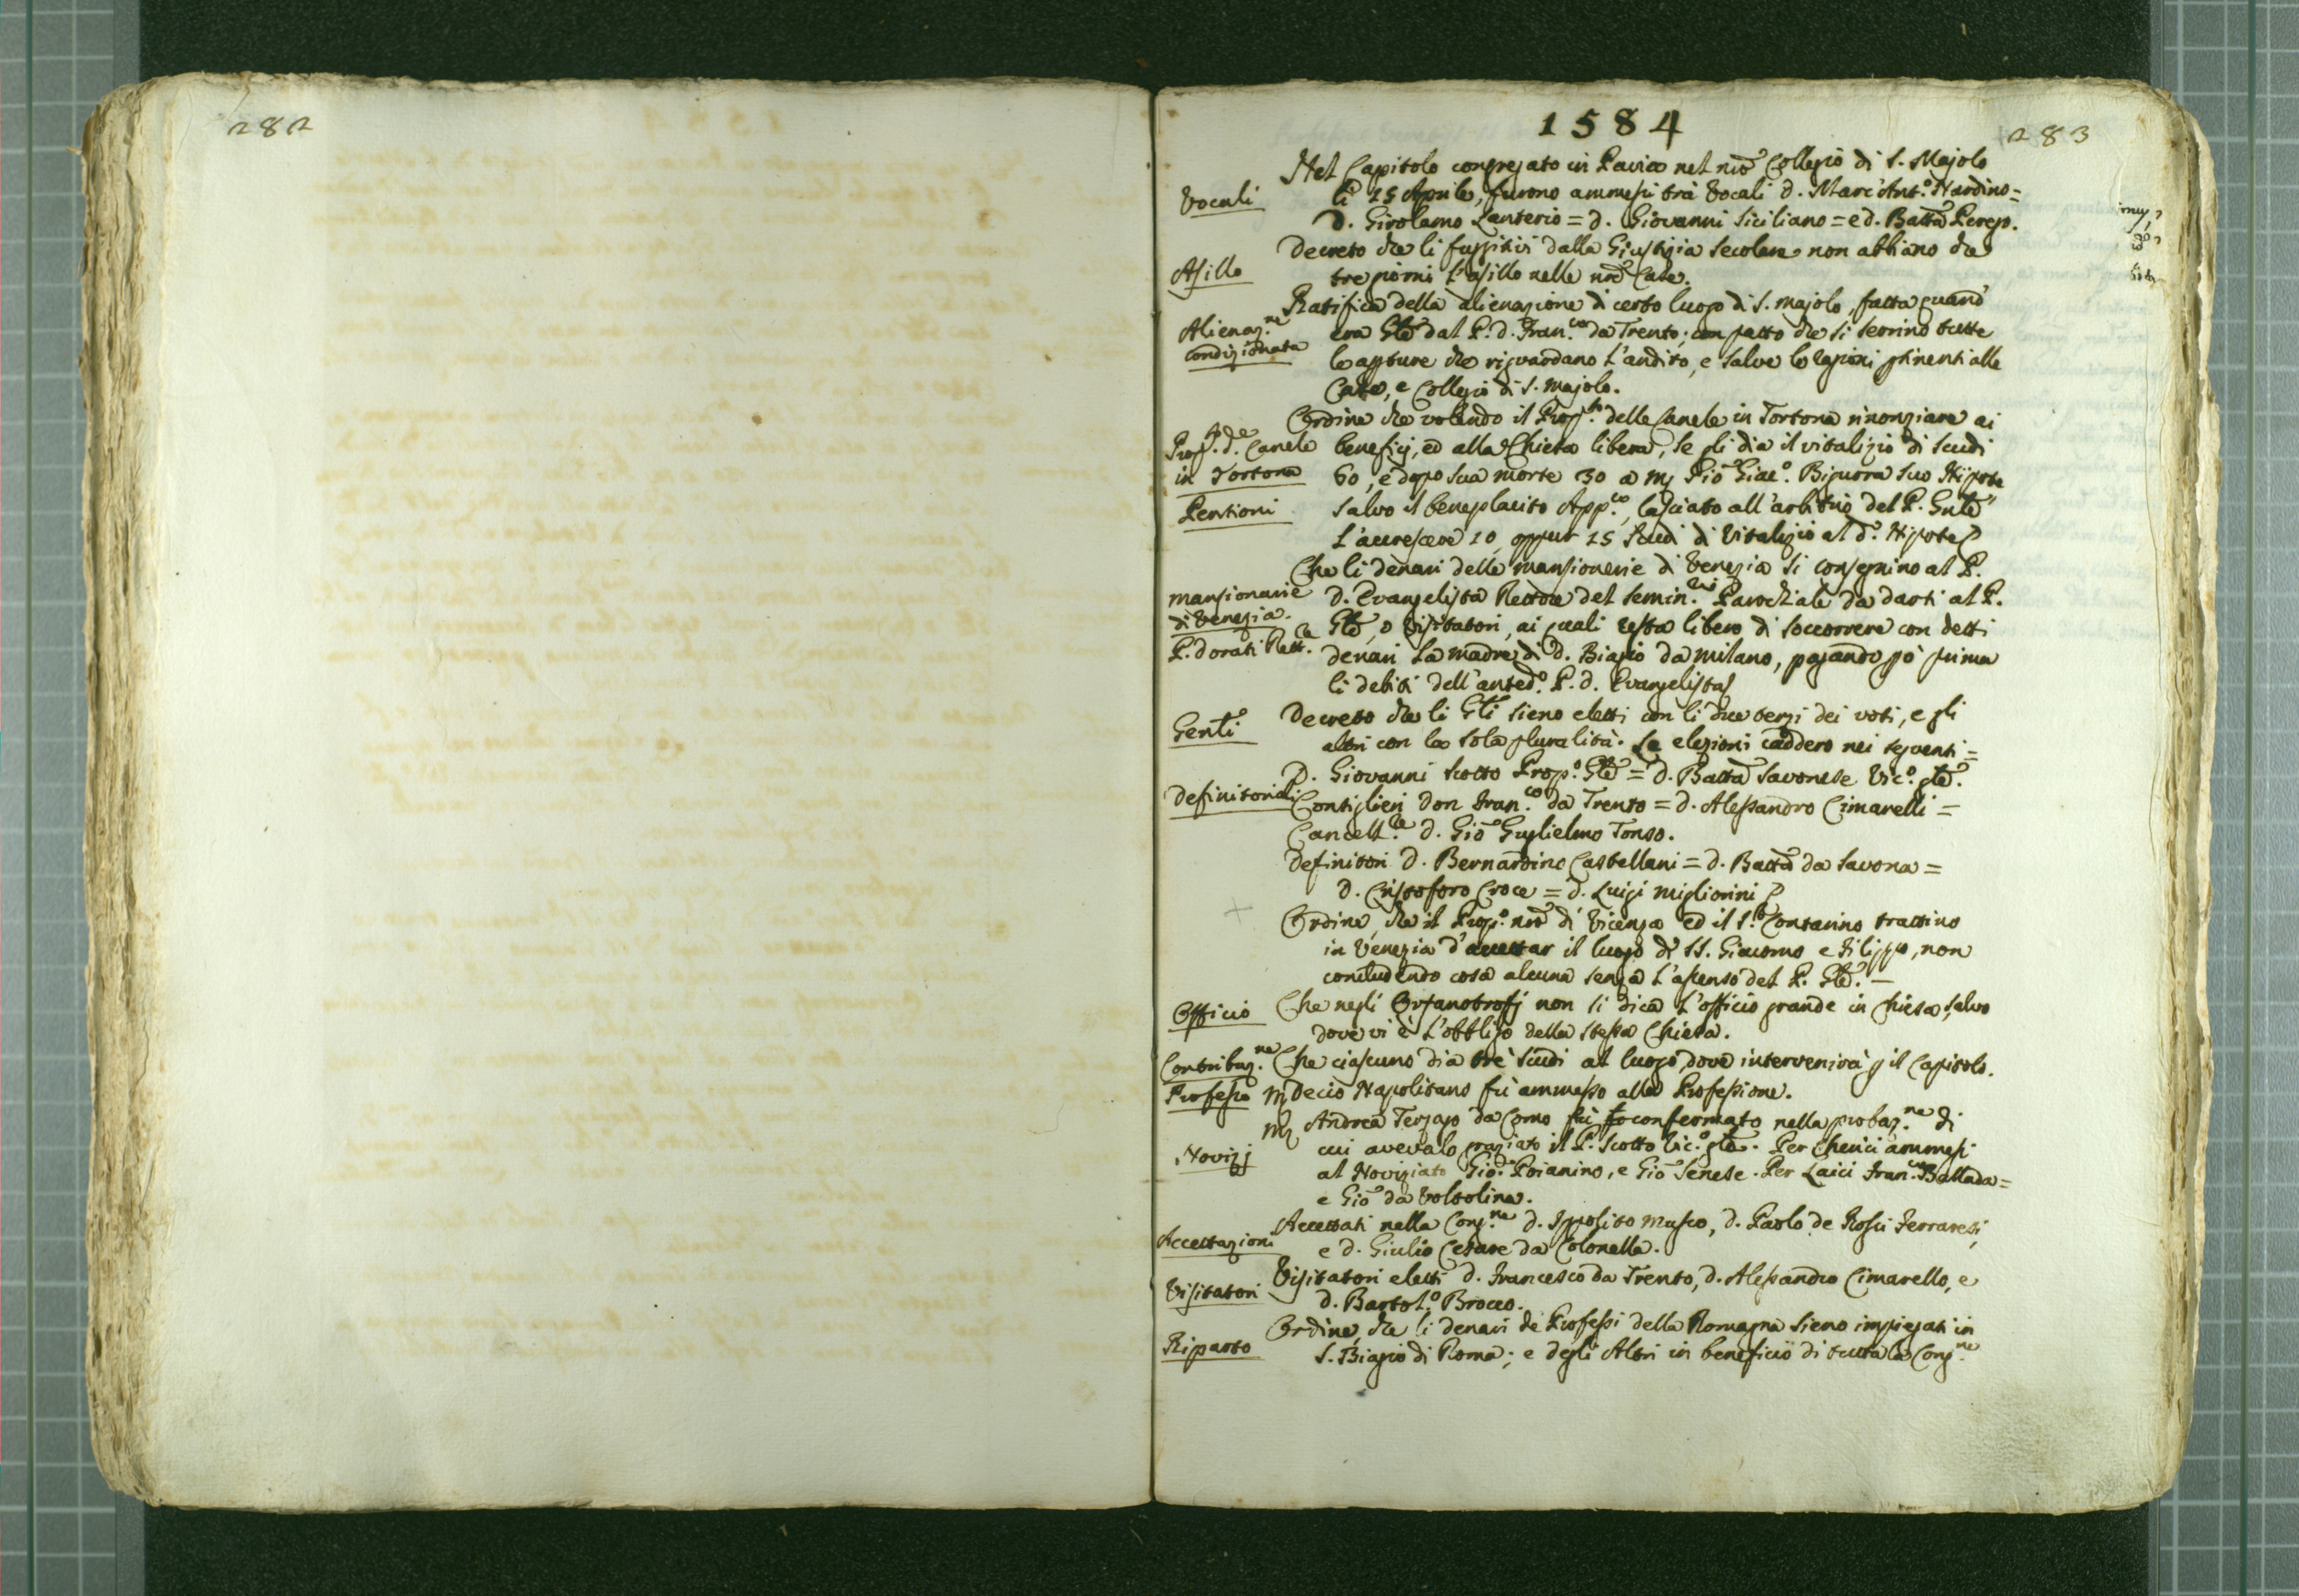 282
1584
283
Nel Capitolo congregato in Pavia nel nrõ Collegio di S. Majolo
Vocali
li 15 Aprile, furono ammessi trà Vocali D. Marc'Ant.º Nardino =
D. Girolamo Lanterio = D. Giovanni Siciliano = e D. Battã Perego.
Asillo
Decreto che li fuggitivi dalla Giustizia secolare non abbiano che
tre giorni l'asillo nelle nrẽ Case.
Alienaz.ne
condizionata
Ratifica della alienazione di certo luogo di S. Majolo fatta quand'
era Glẽ dal P. D. Fran.co da Trento; con patto che si serrino tutte
le apture che riguardano l'andito, e salve le ragioni ptinenti alle
Case, e Collegio di S. Majolo.
Prop.to d.e Canele
in Tortona
Pensioni
Ordine che volendo il Prop.to delle Canele in Tortona rinonziare ai
beneficj, ed alla Chiesa libera, se gli dia il vitalizio di scudi
60, e dopo sua morte 30 a Mʒ Pio Giac.º Bigurra suo Nipote
salvo il beneplacito App.co, lasciato all'arbitrio del P. Gnlẽ
l'accrescere 10, oppur 15 scudi di Vitalizio al d.º Nipote
mansionarie
di Venezia.
P. Dorati Rett.re
Che li denari delle mansionerie di Venezia si consegnino al P.
D. Evangelista Rettore del Semin.rio Parochiale da darsi al P.
Glẽ, o Visitatori, ai quali resta libero di soccorrere con detti
denari la madre di D. Biagio da Milano, pagando pò prima
li debiti dell'anted.º P. D. Evangelista
Genli
Decreto che li Gli sieno eletti con li due terzi dei voti, e gli
altri con la sola pluralità. Le elezioni caddero nei seguenti =
Definitoriali
D. Giovanni Scotto Prop.º Glẽ = D. Battã Savonese Vic.º glẽ.
Consiglieri Don Fran.co da Trento = D. Alessandro Cimarelli =
Cancell.re D. Giõ Guglielmo Tonso.
Definitori D. Bernardino Castellani = D. Battã da Savona =
D. Cristoforo Croce = D. Luigi Migliorini
Ordine, che il Prop.º nrõ di Vicenza ed il S.r Contarino trattino
in Venezia d'accettar il luogo di SS. Giacomo e Filippo, non
concludendo cosa alcuna senza l'assenso del P. Glẽ. —
Officio
Che negli Orfanotrofj non si dica l'officio grande in Chiesa, salvo
dove vi è l'obbligo della stessa Chiesa.
Contribuz.ne
Che ciascuno dia tre scudi al luogo dove intervenirà p il Capitolo.
Professo
Mʒ Decio Napolitano fù ammesso alla Professione.
Novizj
Mʒ Andrea Terzago da Como fù confermato nella probaz.ne di
cui avevalo graziato il P. Scotto Vic.º glẽ. Per Cherici ammessi
al Noviziato Giõ: Poianino, e Giõ Senese. Per Laici Fran.co Ballada =
e Giõ da Voltolina.
Accettazioni
Accettati nella Cong.ne D. Ippolito Musco, D. Paolo de Rossi Ferraresi,
e D. Giulio Cesare da Colonella.
Visitatori
Visitatori eletti D. Francesco da Trento, D. Alessandro Cimarello, e
D. Bartol.º Brocco.
Riparto
Ordine, che li denari de Professi della Romagna sieno impiegati in
S. Biagio di Roma; e degli Altri in beneficio di tutta la Cong.ne